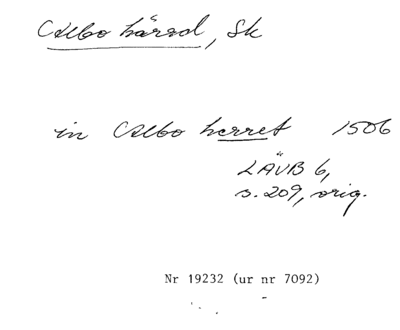 Albo härad, Sk
in Albo herret 1506
LÄUB 6,
s. 209, orig.
Nr 19232 (ur nr 7092)